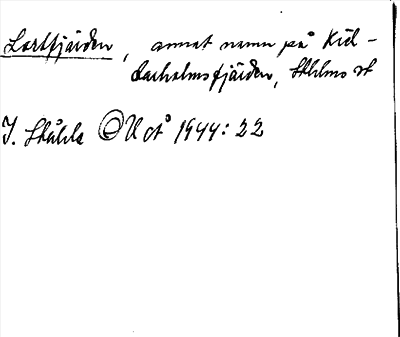 Lortfjärden, annat namn på Kid-
darholmsfjärden, Sthlms st
I. Ståhle OUÅ 1944: 22